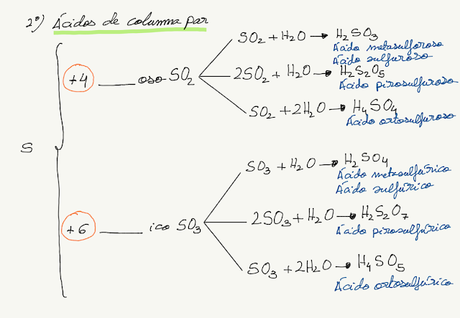 2º) Ácidos de columna par
S
+4 ____ oso SO₂
SO₂ + H₂O → H₂SO₃
Ácido metasulfuroso
Ácido sulfuroso
2SO₂ + H₂O → H₂S₂O₅
Ácido pirosulfuroso
SO₂ + 2H₂O → H₄SO₄
Ácido ortosulfuroso
+6 ____ ico SO₃
SO₃ + H₂O → H₂SO₄
Ácido metasulfúrico
Ácido sulfúrico
2SO₃ + H₂O → H₂S₂O₇
Ácido pirosulfúrico
SO₃ + 2H₂O → H₄SO₅
Ácido ortosulfúrico